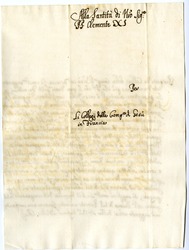 Alla Santità di Nro Sigre
PP Clemente XI
Per
Li Collegj della Compa di Giesù
in